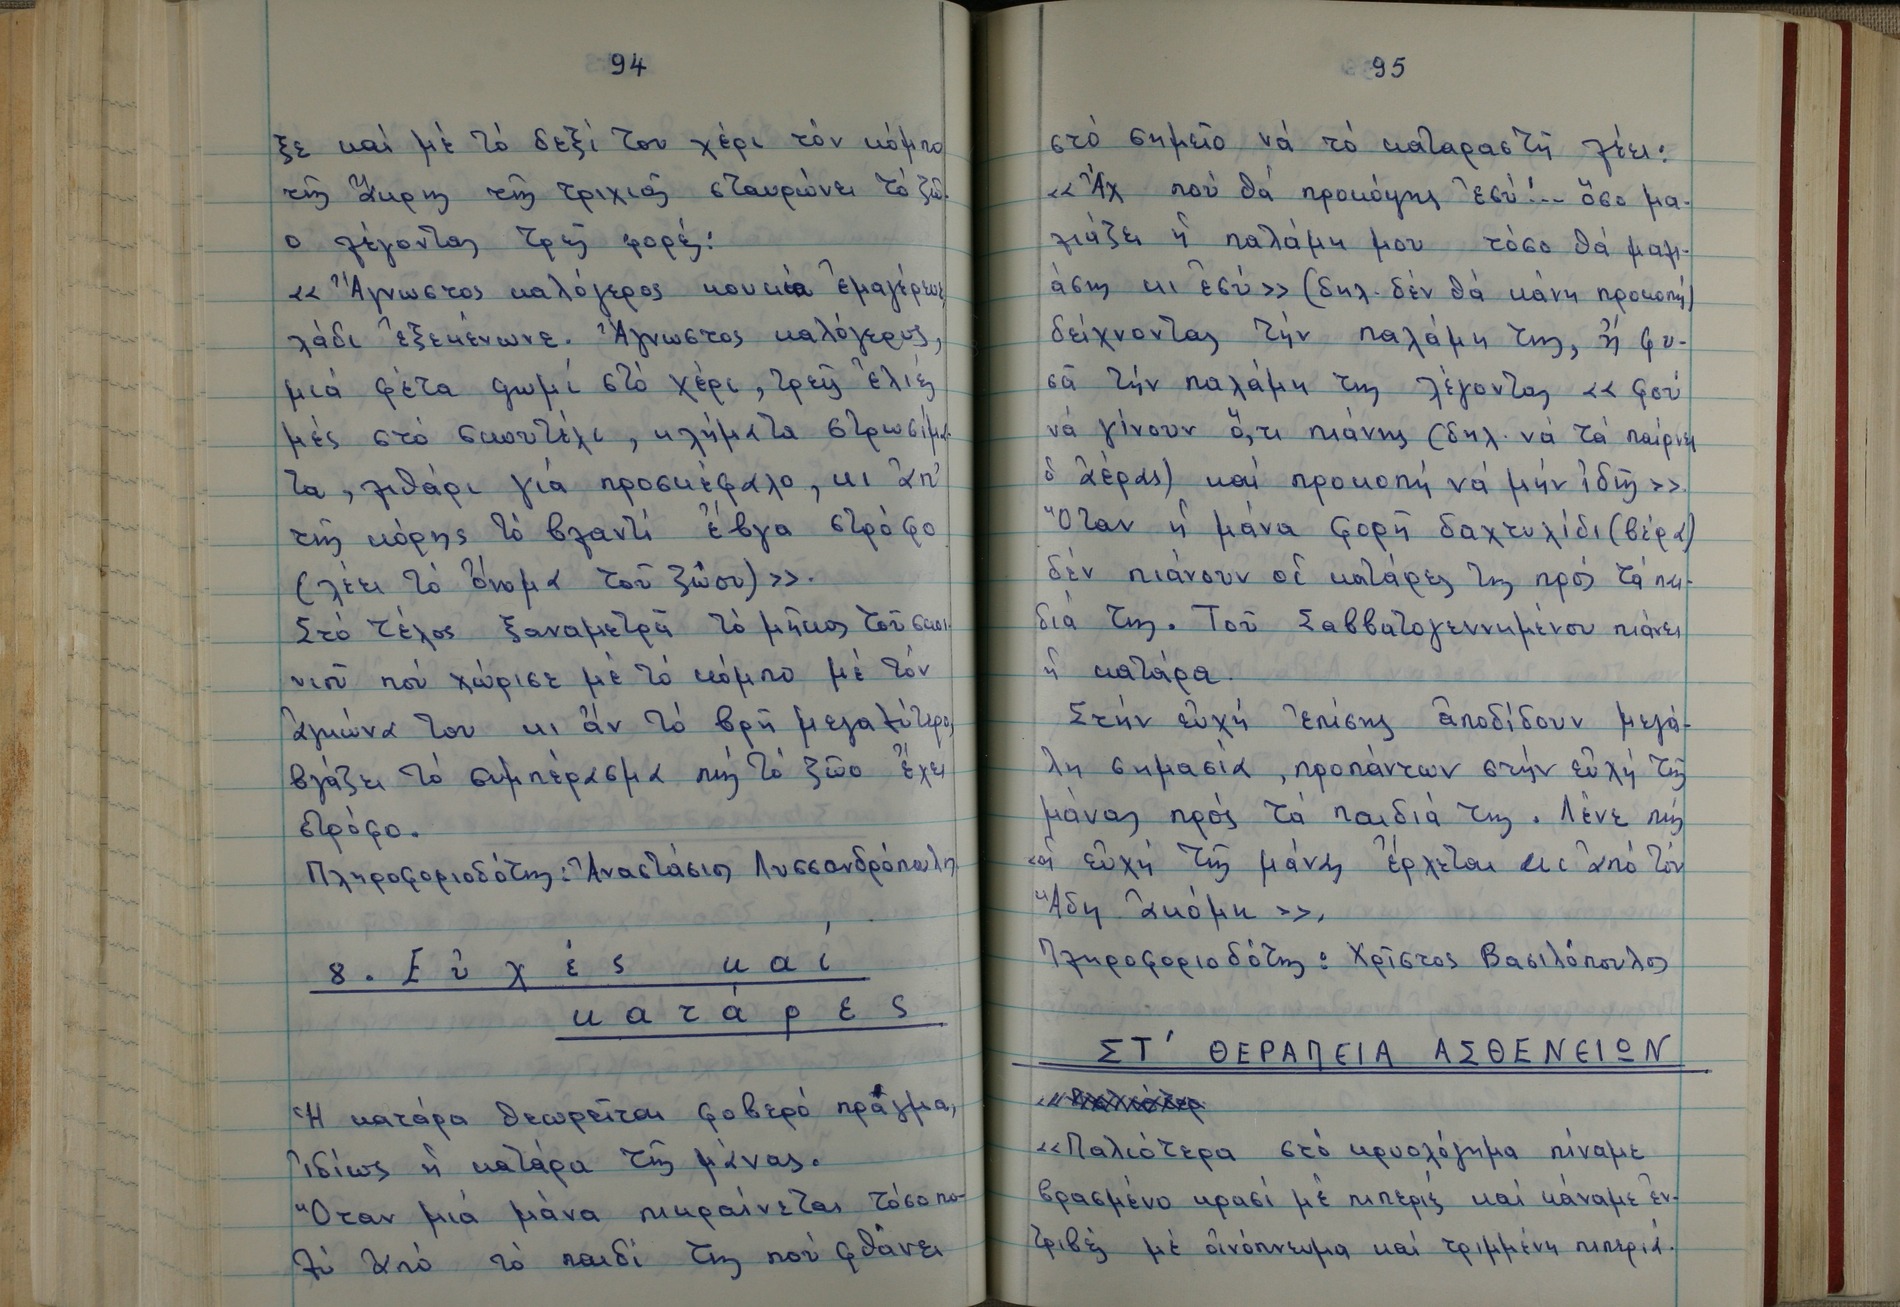 94
ξε καί μέ τό δεξί του χέρι τόν κόμπο
τῆς ἄκρης τῆς τριχιᾶς σταυρώνει τό ζῶ-
ο λέγοντας τρεῖς φορές:
«Ἄγνωστος καλόγερος κουκιά ἐμαγέρευε,
λάδι ἐξεκένωνε. Ἄγνωστος καλόγερος,
μιά φέτα ψωμί στό χέρι, τρεῖς ἐλιές
μές στό σκουτέλι, κλήματα στρωσίμα-
τα, λιθάρι γιά προσκέφαλο, κι ἀπ'
τῆς κόρης τό βλαντί ἔβγα στρόφο
(λέει τό ὄνομα τοῦ ζώου)».
Στό τέλος ξαναμετρᾶ τό μῆκος τοῦ σκοι-
νιοῦ πού χώρισε μέ τό κόμπο μέ τόν
ἀγκώνα του κι ἄν τό βρῆ μεγαλύτερο,
βγάζει τό συμπέρασμα πώς τό ζῶο ἔχει
στρόφο.
Πληροφοριοδότης: Ἀναστάσιος Λυσσανδρόπουλος
8. Εὐχές καί
κατάρες
Ἡ κατάρα θεωρεῖται φοβερό πράγμα,
ἰδίως ἡ κατάρα τῆς μάνας.
Ὅταν μιά μάνα πικραίνεται τόσο πο-
λύ ἀπό τό παιδί της πού φθάνει
95
στό σημεῖο νά τό καταραστῆ λέει:
«Ἄχ πού θά προκόψης ἐσύ!-- ὅσο μα-
λιάζει ἡ παλάμη μου τόσο θά μαλι-
άσης κι ἐσύ» (δηλ. δέν θά κάνη προκοπή)
δείχνοντας τήν παλάμη της, ἤ φυ-
σᾶ τήν παλάμη της λέγοντας «φού
νά γίνουν ὅ,τι πιάνης (δηλ. νά τά παίρνει
ὁ ἀέρας) καί προκοπή νά μήν ἰδῆς».
Ὅταν ἡ μάνα φορῆ δαχτυλίδι (βέρα)
δέν πιάνουν οἱ κατάρες της πρός τά παι-
διά της. Τοῦ Σαββατογεννημένου πιάνει
ἡ κατάρα.
Στήν εὐχή ἐπίσης ἀποδίδουν μεγά-
λη σημασία, προπάντων στήν εὐχή τῆς
μάνας πρός τά παιδιά της. Λένε πώς
«ἡ εὐχή τῆς μάνας ἔρχεται κι ἀπό τόν
Ἅδη ἀκόμη».
Πληροφοριοδότης: Χρῖστος Βασιλόπουλος
ΣΤ' ΘΕΡΑΠΕΙΑ ΑΣΘΕΝΕΙΩΝ
«Παλιότερ
«Παλιότερα στό κρυολόγημα πίναμε
βρασμένο κρασί μέ πιπεριές καί κάναμε ἐν-
τριβές μέ οἰνόπνευμα καί τριμμένη πιπεριά.